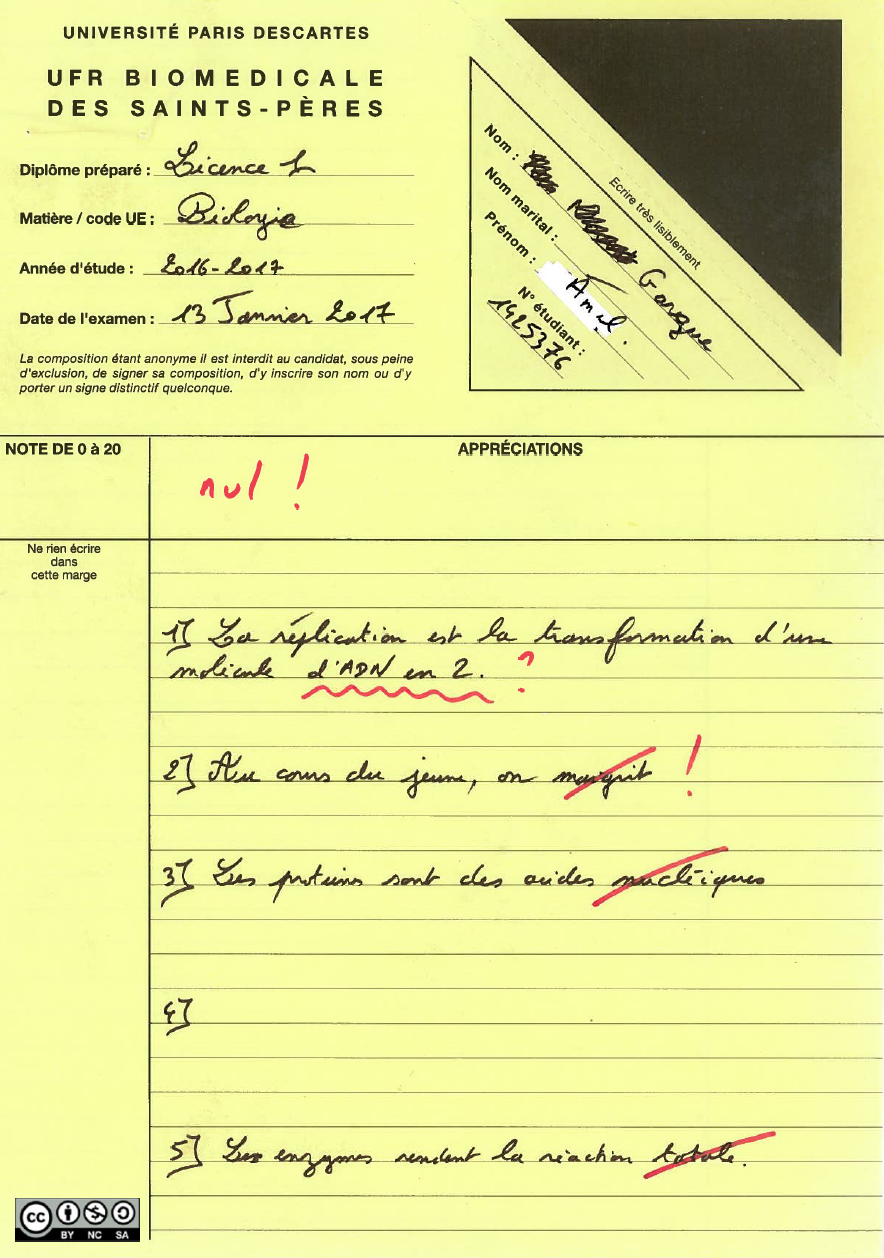 UNIVERSITÉ PARIS DESCARTES
UFR BIOMEDICALE
DES SAINTS-PÈRES
Diplôme préparé : Licence 1
Matière / code UE : Biologie
Année d'étude : 2016-2017
Date de l'examen : 13 Janvier 2017
La composition étant anonyme il est interdit au candidat, sous peine
d'exclusion, de signer sa composition, d'y inscrire son nom ou d'y
porter un signe distinctif quelconque.
Ecrire très lisiblement
Nom : Garque
Nom marital :
Prénom : Amel.
N° étudiant :
1425376
NOTE DE 0 à 20
APPRÉCIATIONS
nul !
Ne rien écrire
dans
cette marge
1] La réplication est la transformation d'une
molécule d'ADN en 2. ?
2] Au cours du jeune, on maigrit !
3] Les protéines sont des acides nucléiques
4]
5] Les enzymes rendent la réaction totale.
cc BY NC SA